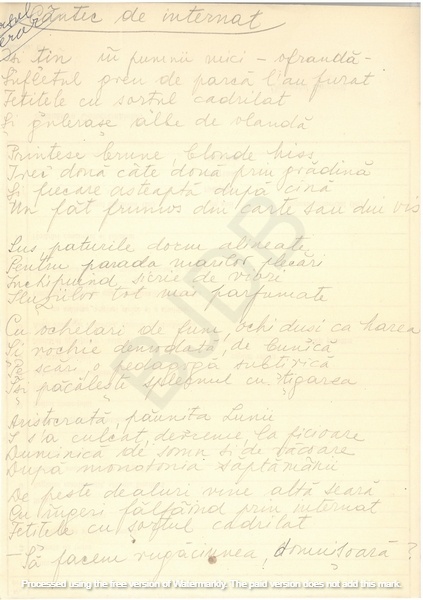 Cântec de internat
Își țin în pumnii mici – ofrandă –
Sufletul greu de parcă l'au furat
Fetițele cu sortul cadrilat
Și gulerașe albe de olandă
Prințese brune, blonde miss
Trec două câte două prin grădină
Și fiecare așteaptă după cină
Un făt frumos din carte sau din vis
Sus paturile dorm aliniate
Pentru parada marilor plecări
Închipuind sicrie de
tot mai parfumate
Cu ochelari de fum, ochi duși ca
Și rochie demodată, de bunică
Pe scări, o pedagogă subțirică
Își păcălește spleenul cu țigarea
Aristocrată, păunița Lunii
I s'a culcat, devreme, la picioare
Duminică de somn și de tăcere
După monotonia săptămânii
De peste dealuri vine altă seară
Cu îngeri fâlfâind prin internat
Fetițele cu sortul cadrilat
– Să facem rugăciunea, domnișoară?
BJBB
Processed using the free version of Watermarkly. The paid version does not add this mark.